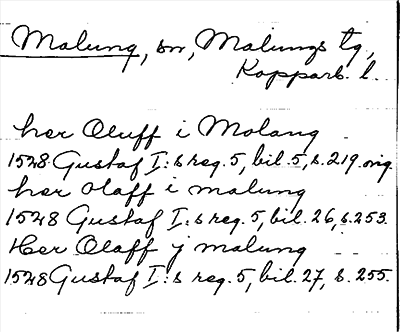 Malung, sn, Malungs tg,
Kopparb. l.
her Oluff i Molang
1528 Gustaf I:s reg. 5, bil. 5, s. 219. orig.
her Olaff i malung
1528 Gustaf I:s reg. 5, bil. 26, s. 253.
Her Olaff j malung
1528 Gustaf I:s reg. 5, bil. 27, s. 255.